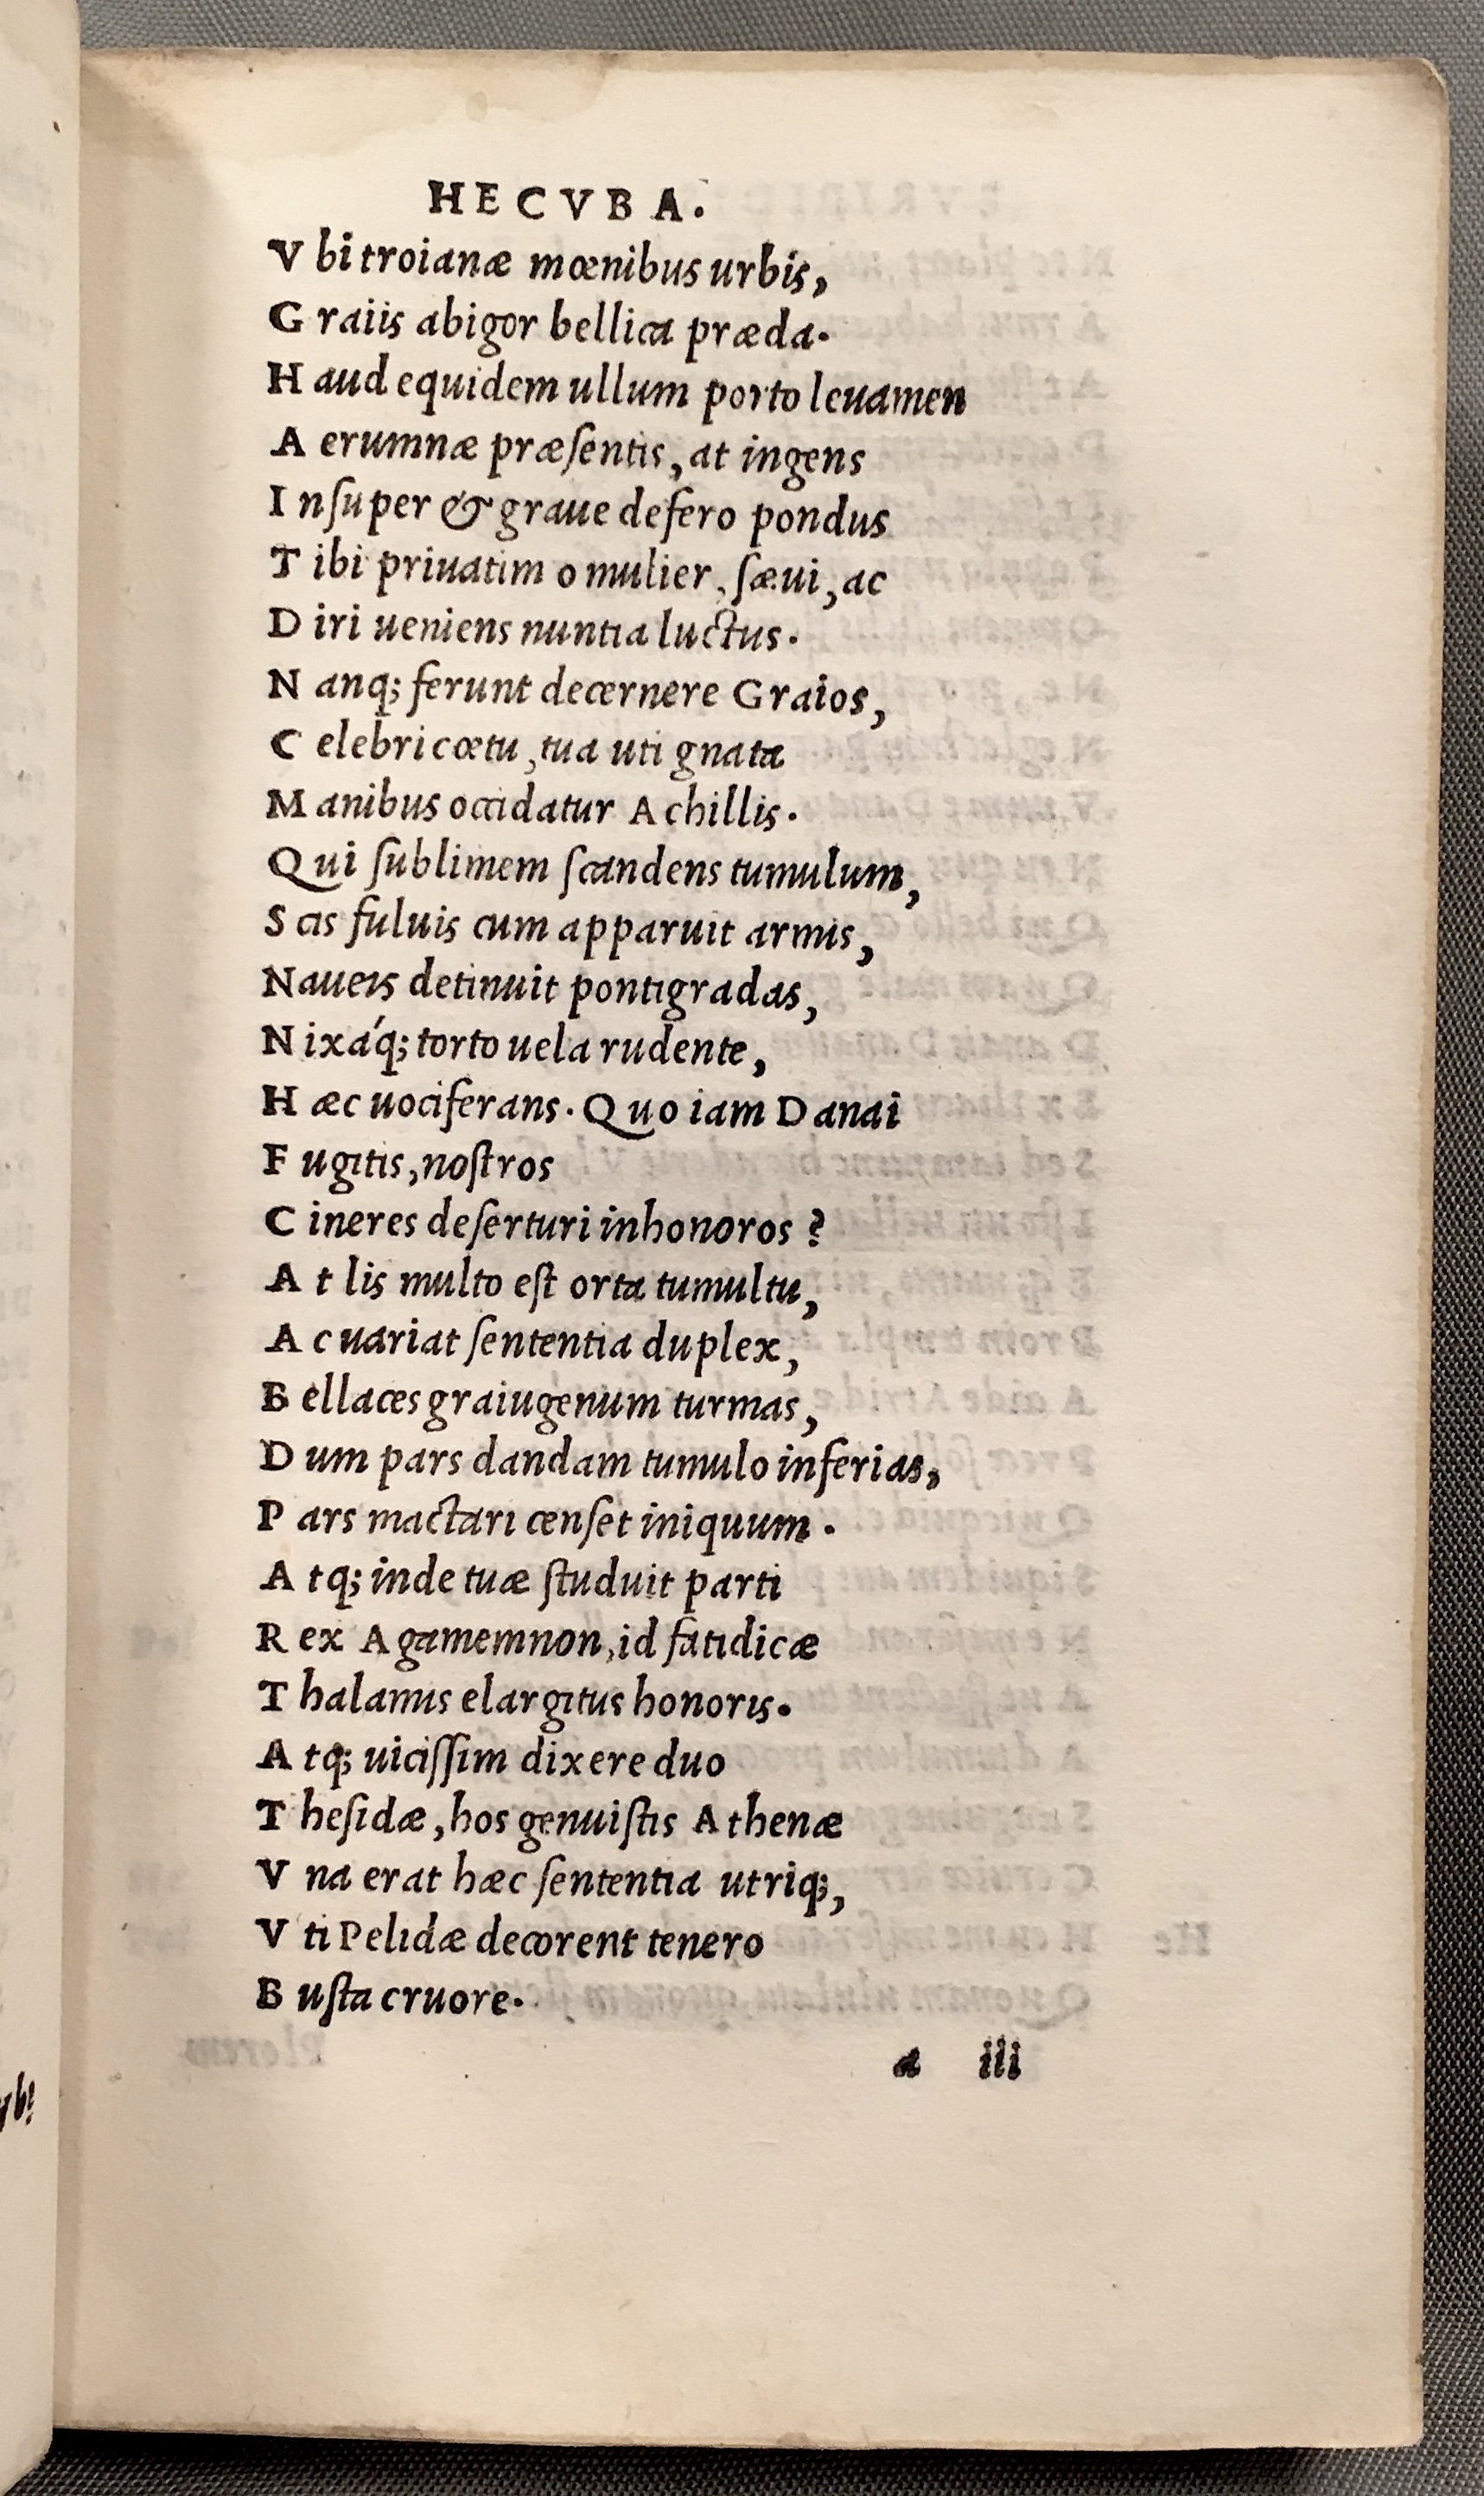 HECVBA.
V bi troianæ mœnibus urbis,
G raiis abigor bellica præda.
H aud equidem ullum porto leuamen
A erumnæ præſentis, at ingens
I nſuper & graue defero pondus
T ibi priuatim o mulier, ſæui, ac
D iri ueniens nuntia luctus.
N anq; ferunt decernere Graios,
C elebri cœtu, tua uti gnata
M anibus occidatur Achillis.
Q ui ſublimem ſcandens tumulum,
S cis fuluis cum apparuit armis,
Naueis detinuit pontigradas,
N ixáq; torto uela rudente,
H æc uociferans. Quo iam Danai
F ugitis, noſtros
C ineres deſerturi inhonoros ?
A t lis multo eſt orta tumultu,
A c uariat ſententia duplex,
B ellaces graiugenum turmas,
D um pars dandam tumulo inferias,
P ars mactari cenſet iniquum.
A tq; inde tuæ ſtuduit parti
R ex Agamemnon, id fatidicæ
T halamis elargitus honoris.
A tq; uiciſſim dixere duo
T heſidæ, hos genuiſtis Athenæ
V na erat hæc ſententia utriq;,
V ti Pelidæ decorent tenero
B uſta cruore.
a iii